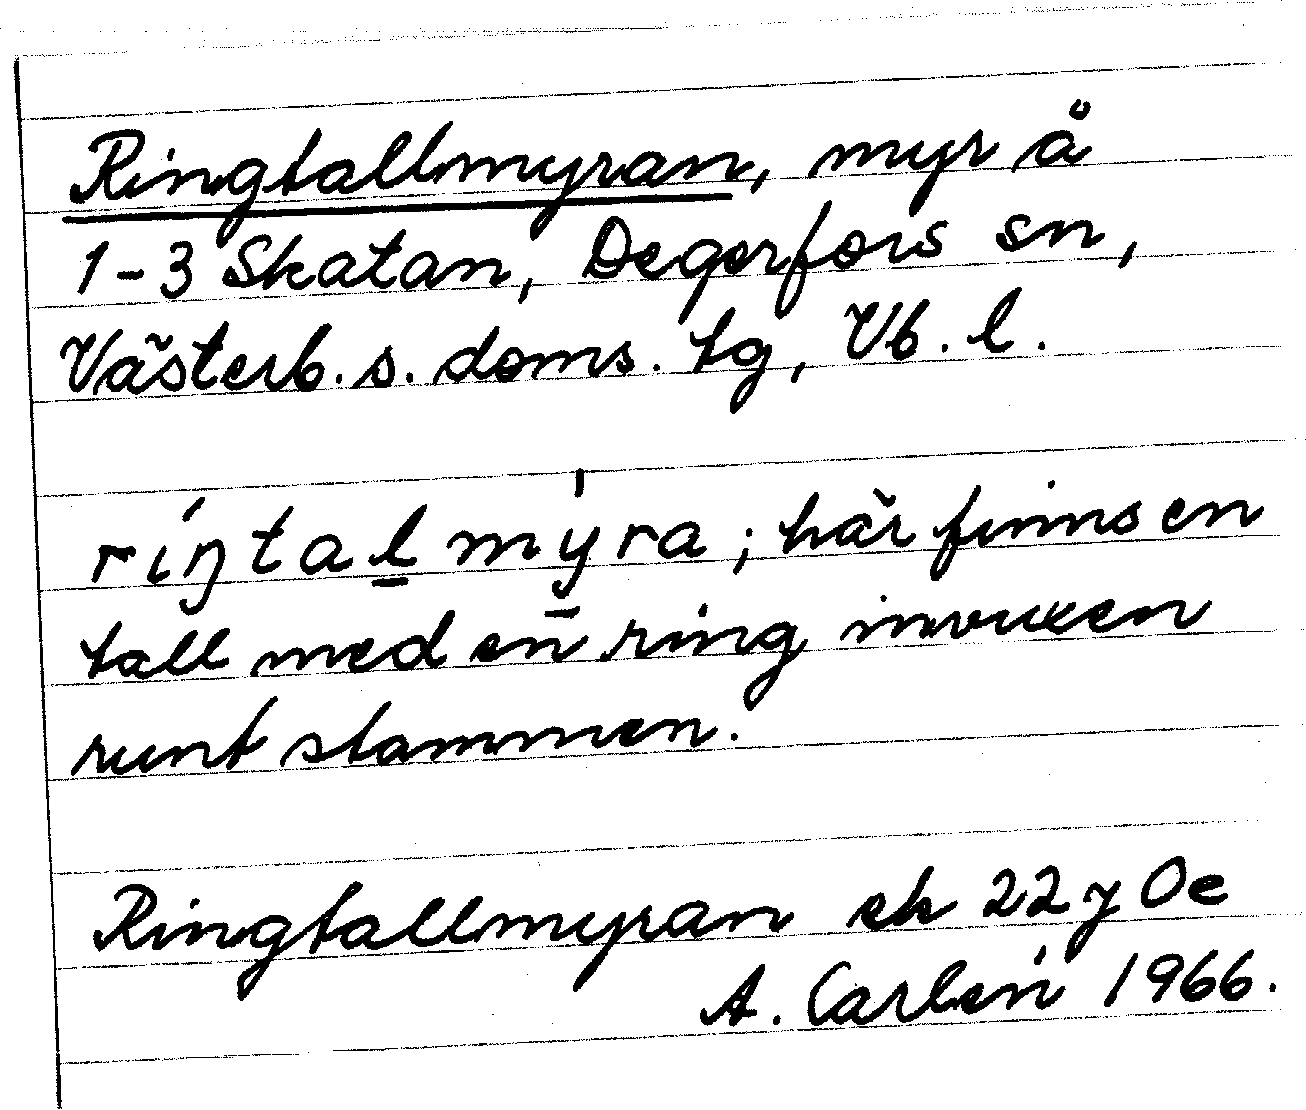 Ringtallmyran, myr å
1-3 Skatan, Degerfors sn,
Västerb. s. doms. tg, Vb. l.
ríŋtal̲mẏ̱ra; här finns en
tall med en ring invuxen
runt stammen.
Ringtallmyran ek 22 y Oe
A. Carlén 1966.